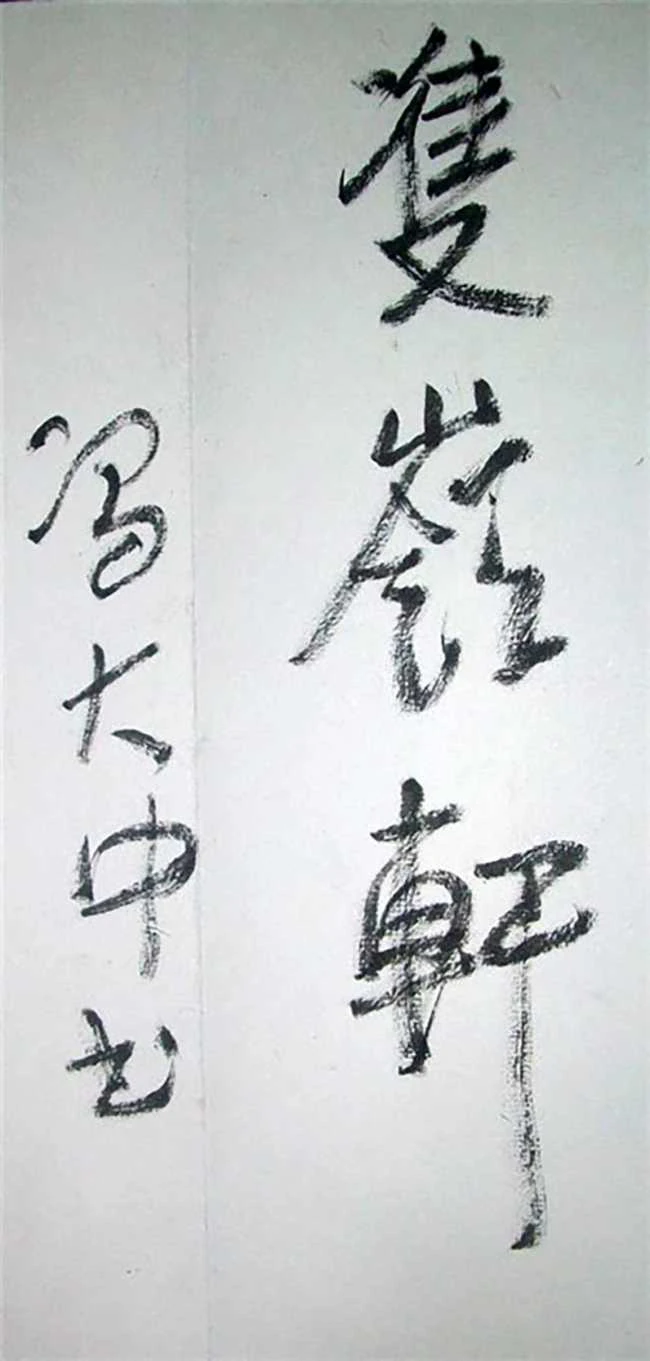 隻嶺軒
馮大中書